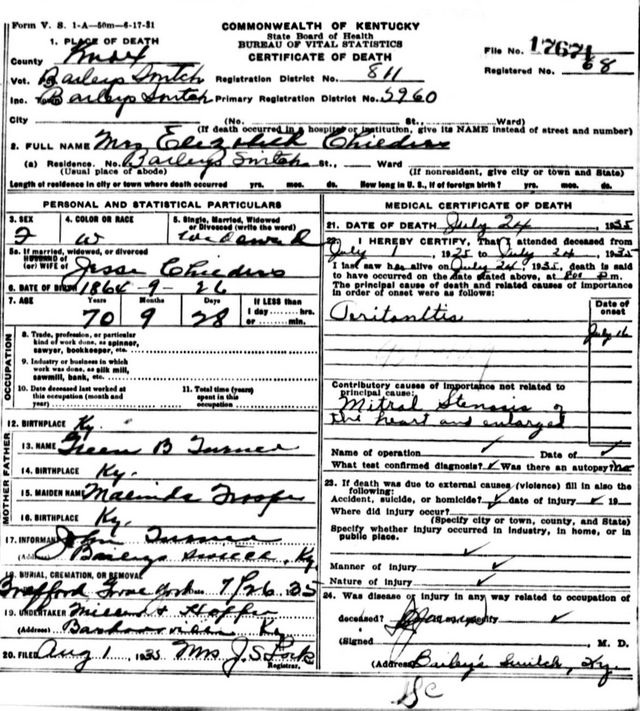 Form V. S. 1-A—50m—6-17-31
COMMONWEALTH OF KENTUCKY
State Board of Health
BUREAU OF VITAL STATISTICS
CERTIFICATE OF DEATH
File No. 17671
Registered No. 68
1. PLACE OF DEATH
County Knox
Vot. Baileys Switch Registration District No. 811
Inc. Town Baileys Switch Primary Registration District No. 5960
City (No. St., Ward)
(If death occurred in a hospital or institution, give its NAME instead of street and number)
2. FULL NAME Mrs Elizabeth Childers
(a) Residence. No. Baileys Switch St., Ward
(Usual place of abode) (If nonresident, give city or town and State)
Length of residence in city or town where death occurred yrs. mos. ds. How long in U. S., if of foreign birth? yrs. mos. ds.
PERSONAL AND STATISTICAL PARTICULARS
3. SEX 4. COLOR OR RACE 5. Single, Married, Widowed
or Divorced (write the word)
F W Widowed
5a. If married, widowed, or divorced
HUSBAND of
(or) WIFE of Jesse Childers
6. DATE OF BIRTH 1864-9-26
7. AGE Years Months Days If LESS than
1 day hrs.
or min.
70 9 28
OCCUPATION
8. Trade, profession, or particular
kind of work done, as spinner,
sawyer, bookkeeper, etc.
9. Industry or business in which
work was done, as silk mill,
sawmill, bank, etc.
10. Date deceased last worked at
this occupation (month and
year)
11. Total time (years)
spent in this
occupation
12. BIRTHPLACE Ky.
FATHER
13. NAME Green B Turner
14. BIRTHPLACE Ky.
MOTHER
15. MAIDEN NAME Malinda
16. BIRTHPLACE Ky.
17. INFORMANT John Turner
(Address) Baileys Switch, Ky.
18. BURIAL, CREMATION, OR REMOVAL
7/26 35
19. UNDERTAKER
(Address) Barbourville Ky
20. FILED Aug 1, 1935 Mrs J. S. Lock
Registrar.
MEDICAL CERTIFICATE OF DEATH
21. DATE OF DEATH July 24, 1935
22. I HEREBY CERTIFY, That I attended deceased from
July 1, 1935 to July 24, 1935
I last saw her alive on July 24, 1935, death is said
to have occurred on the date stated above, at m.
The principal cause of death and related causes of importance
in order of onset were as follows:
Date of
onset
Peritonitis July 16
Contributory causes of importance not related to
principal cause:
Mitral Stenosis of
the heart and enlarged
Name of operation Date of
What test confirmed diagnosis? Was there an autopsy? no
23. If death was due to external causes (violence) fill in also the
following:
Accident, suicide, or homicide? date of injury 19
Where did injury occur?
(Specify city or town, county, and State)
Specify whether injury occurred in industry, in home, or in
public place.
Manner of injury
Nature of injury
24. Was disease or injury in any way related to occupation of
deceased? If so, specify
(Signed) M. D.
(Address) Bailey's Switch, Ky.